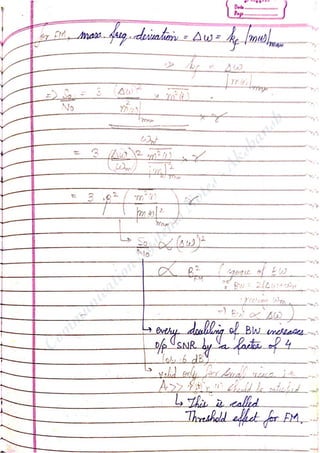 Date
Page
for FM, max. freq. deviation = Δω = kf |m(t)|max
=> kf = Δω / |m(t)|max
=> So/No = 3 (Δω)² / m²(t)|max × m²(t) / ωm² × γ
= 3 (Δω/ωm)² m²(t) / |m|²max × γ
= 3 β² ( m²(t) / |m(t)|²max ) γ
↳ So/No ∝ (Δω)²
∝ B²FM ( of BW
BW = 2(Δω+ωm)
=> BW ∝ Δω )
↳ every doubling of BW increases
o/p SNR by a factor of 4
(or 6 dB)
valid only for small noise i.e.
A >> should be satisfied
↳ This is called
Threshold effect for FM.
Communication Notes - Akakansh